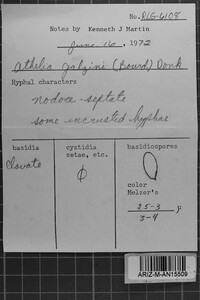 No. RLG-6108
Notes by Kenneth J Martin
June 16, 1972
Athelia galzini (Bourd) Donk
Hyphal characters
nodose-septate
some encrusted hyphae
basidia
Clavate
cystidia
setae, etc.
basidiospores
color
Melzer's
2.5-3 μ
3-4
ARIZ-M-AN15509